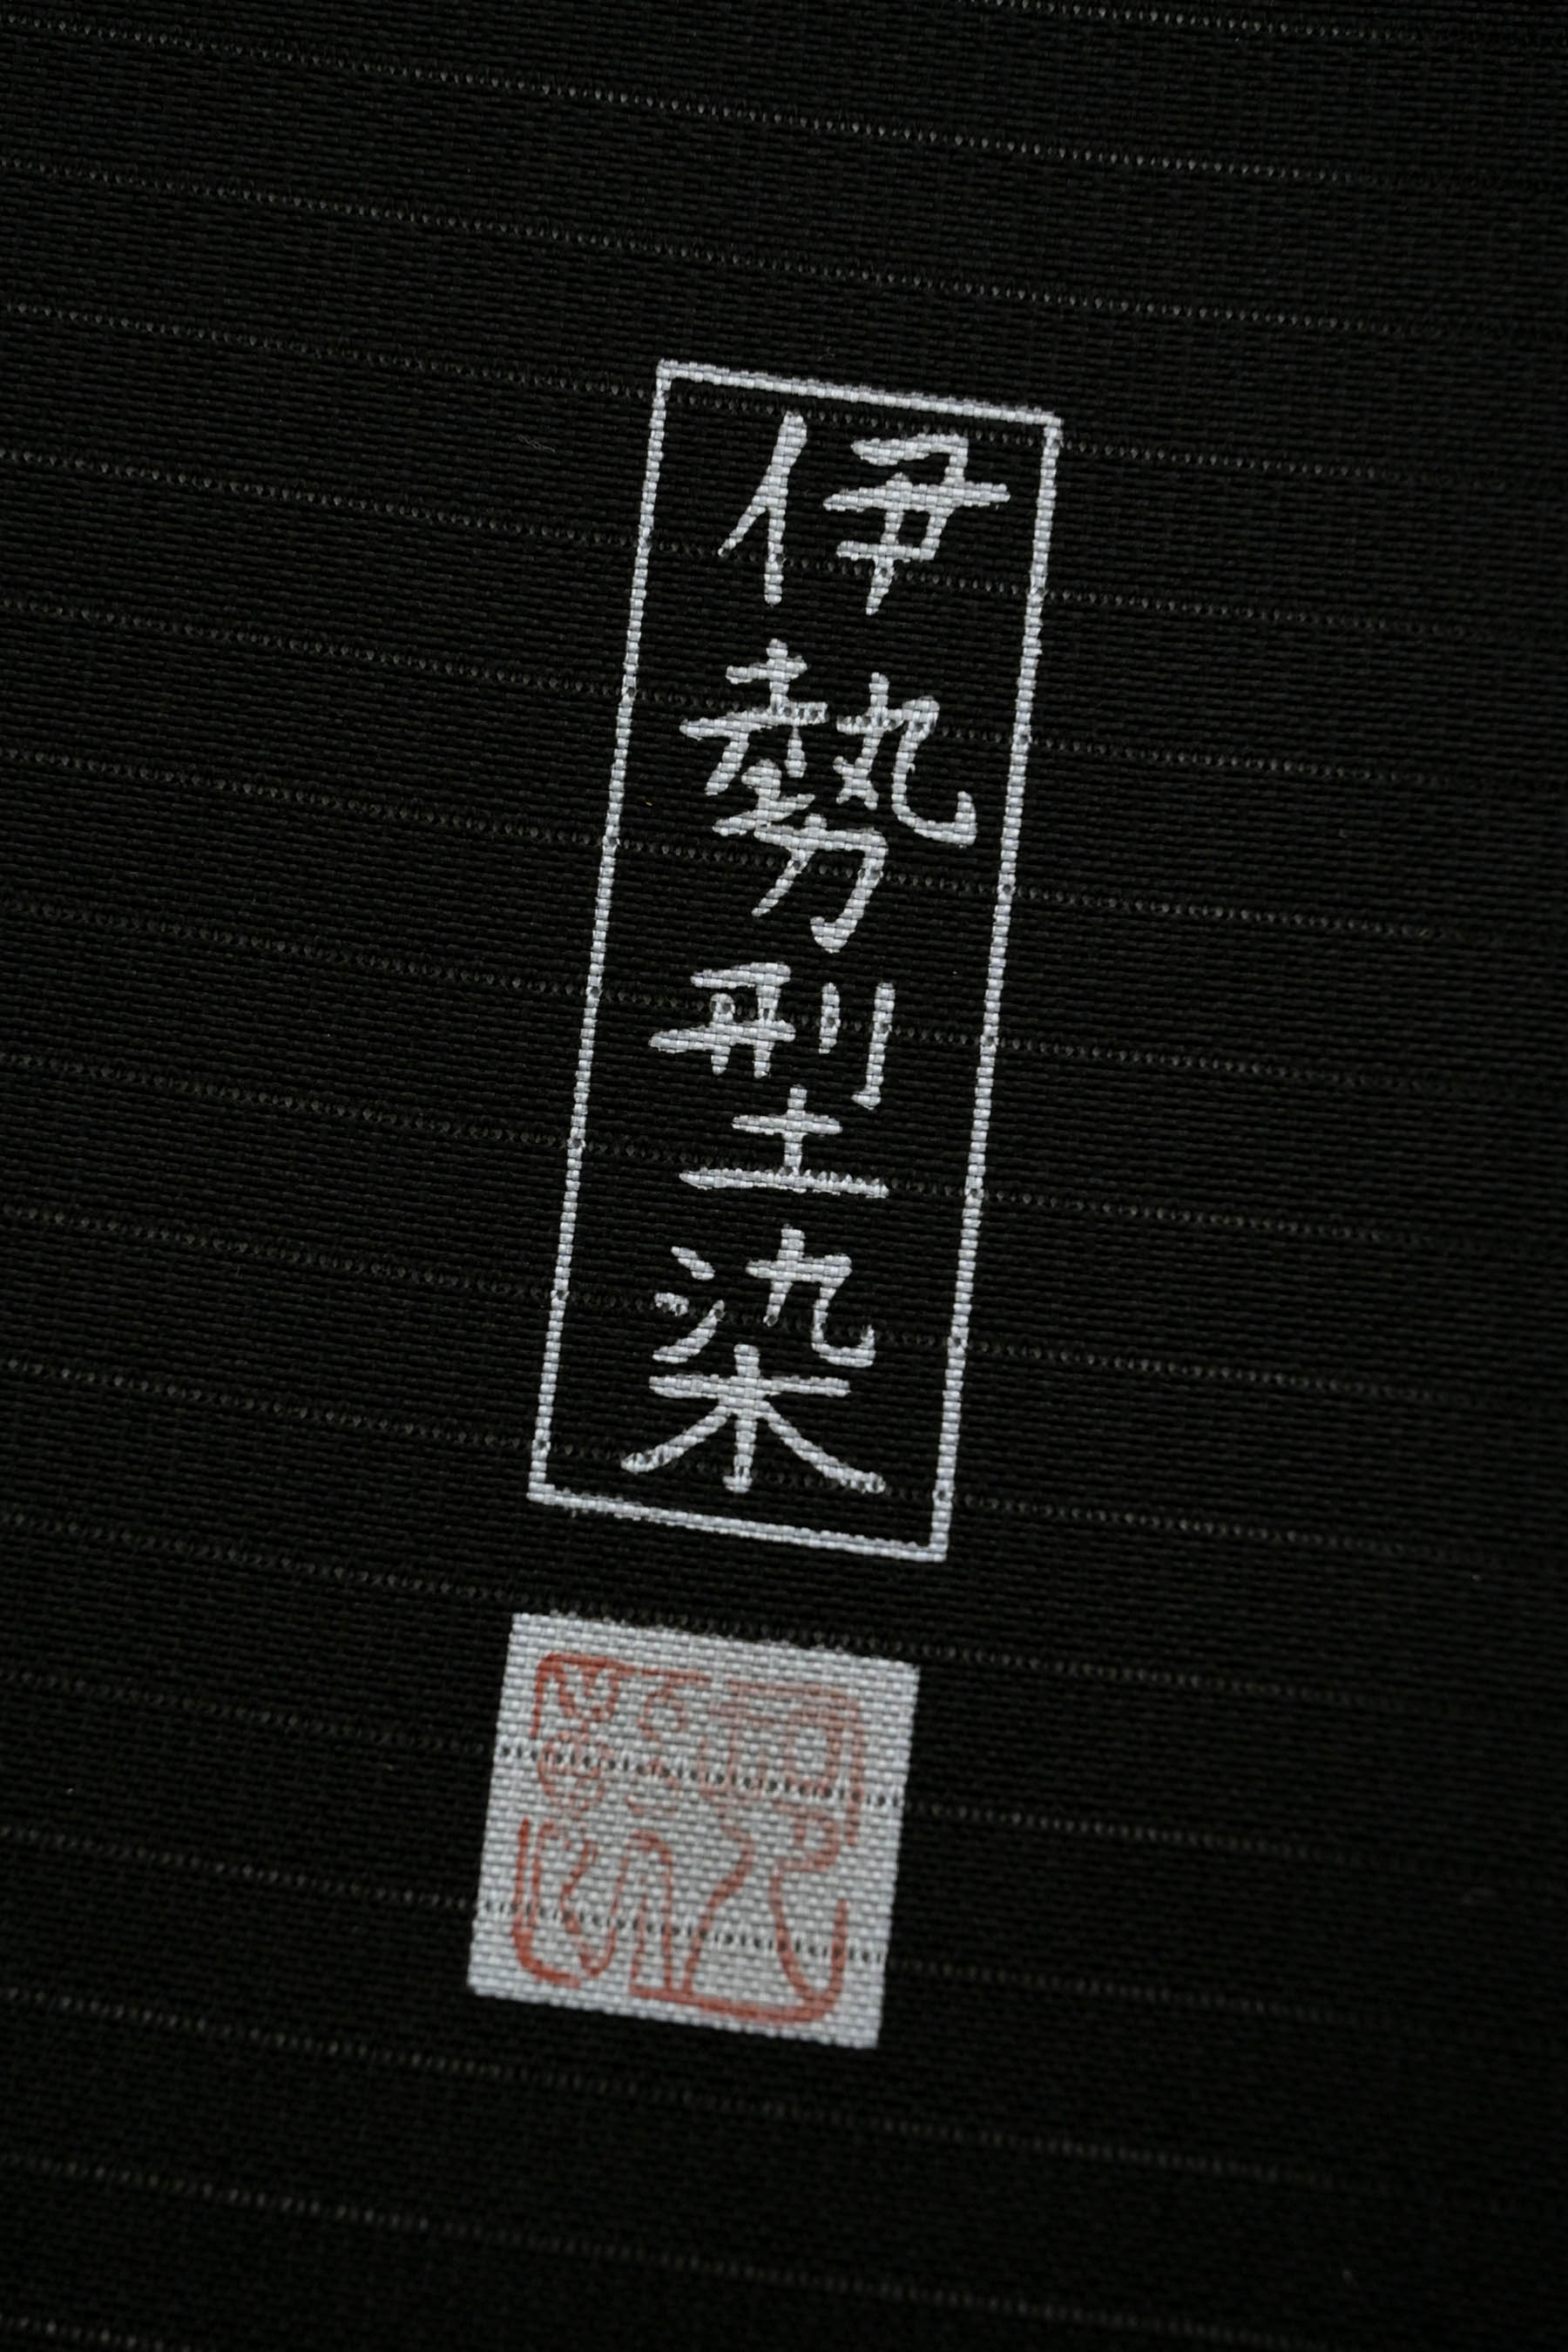 伊勢型染